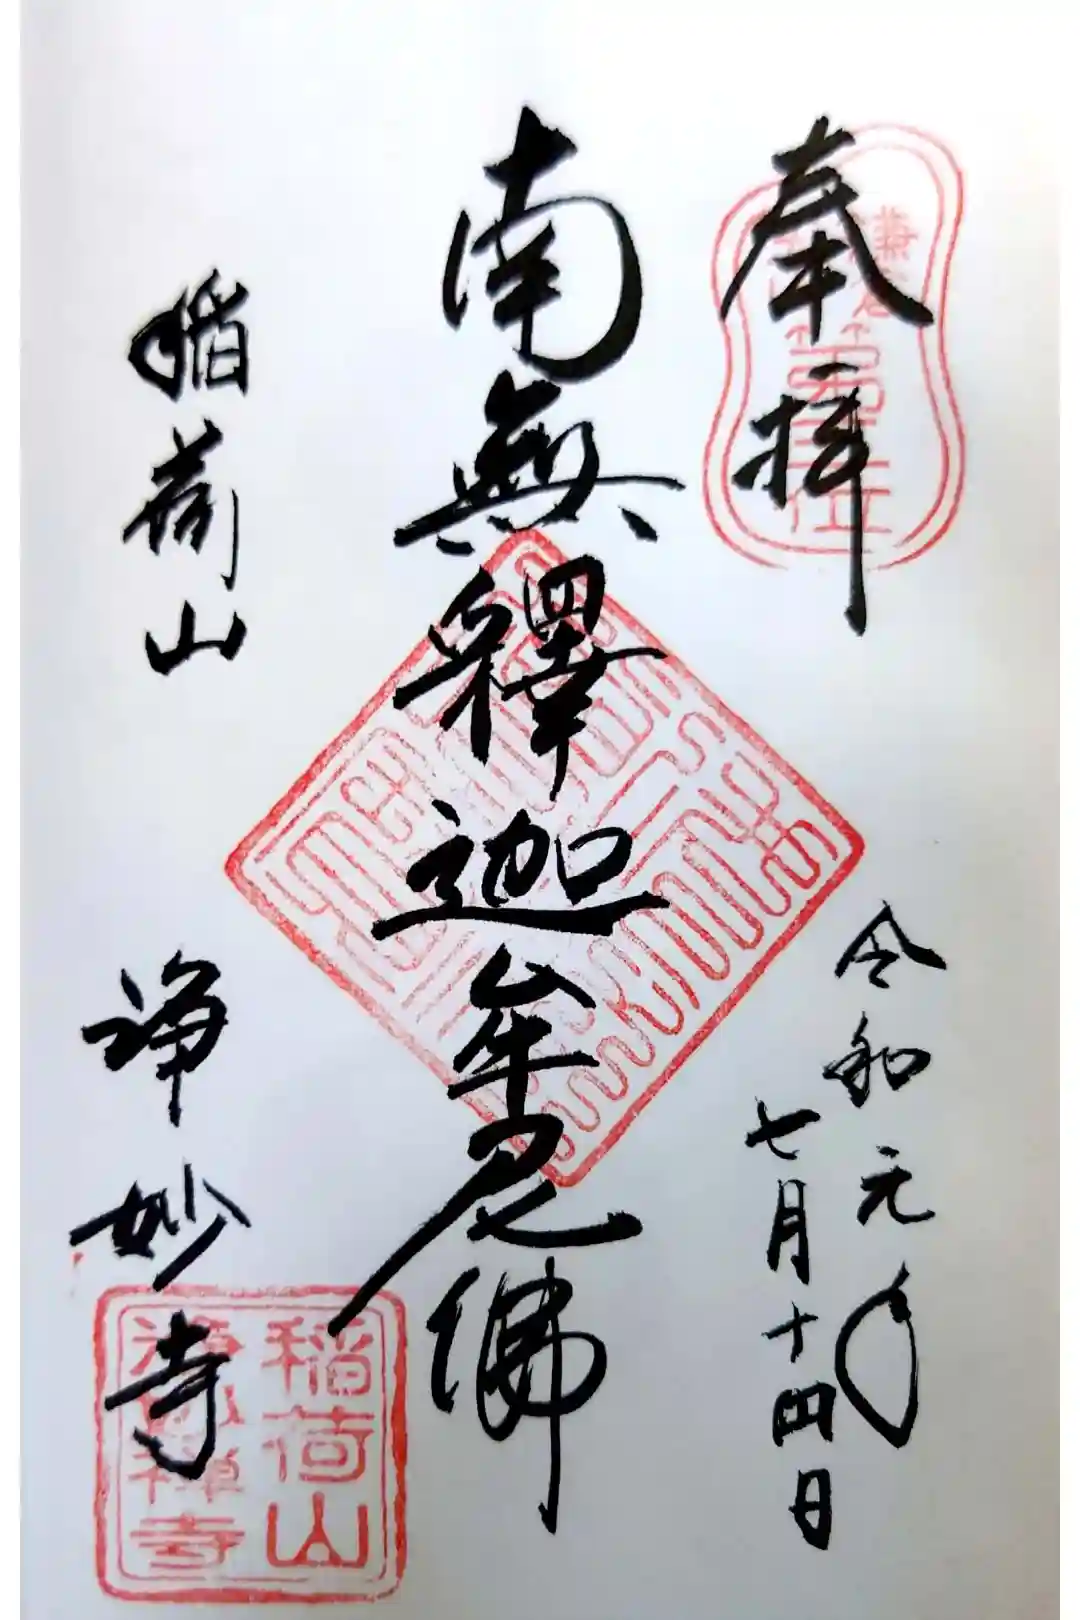 奉拝
令和元年
七月十四日
南無釋迦牟尼佛
稲荷山
浄妙寺
稲荷山
浄妙禅寺